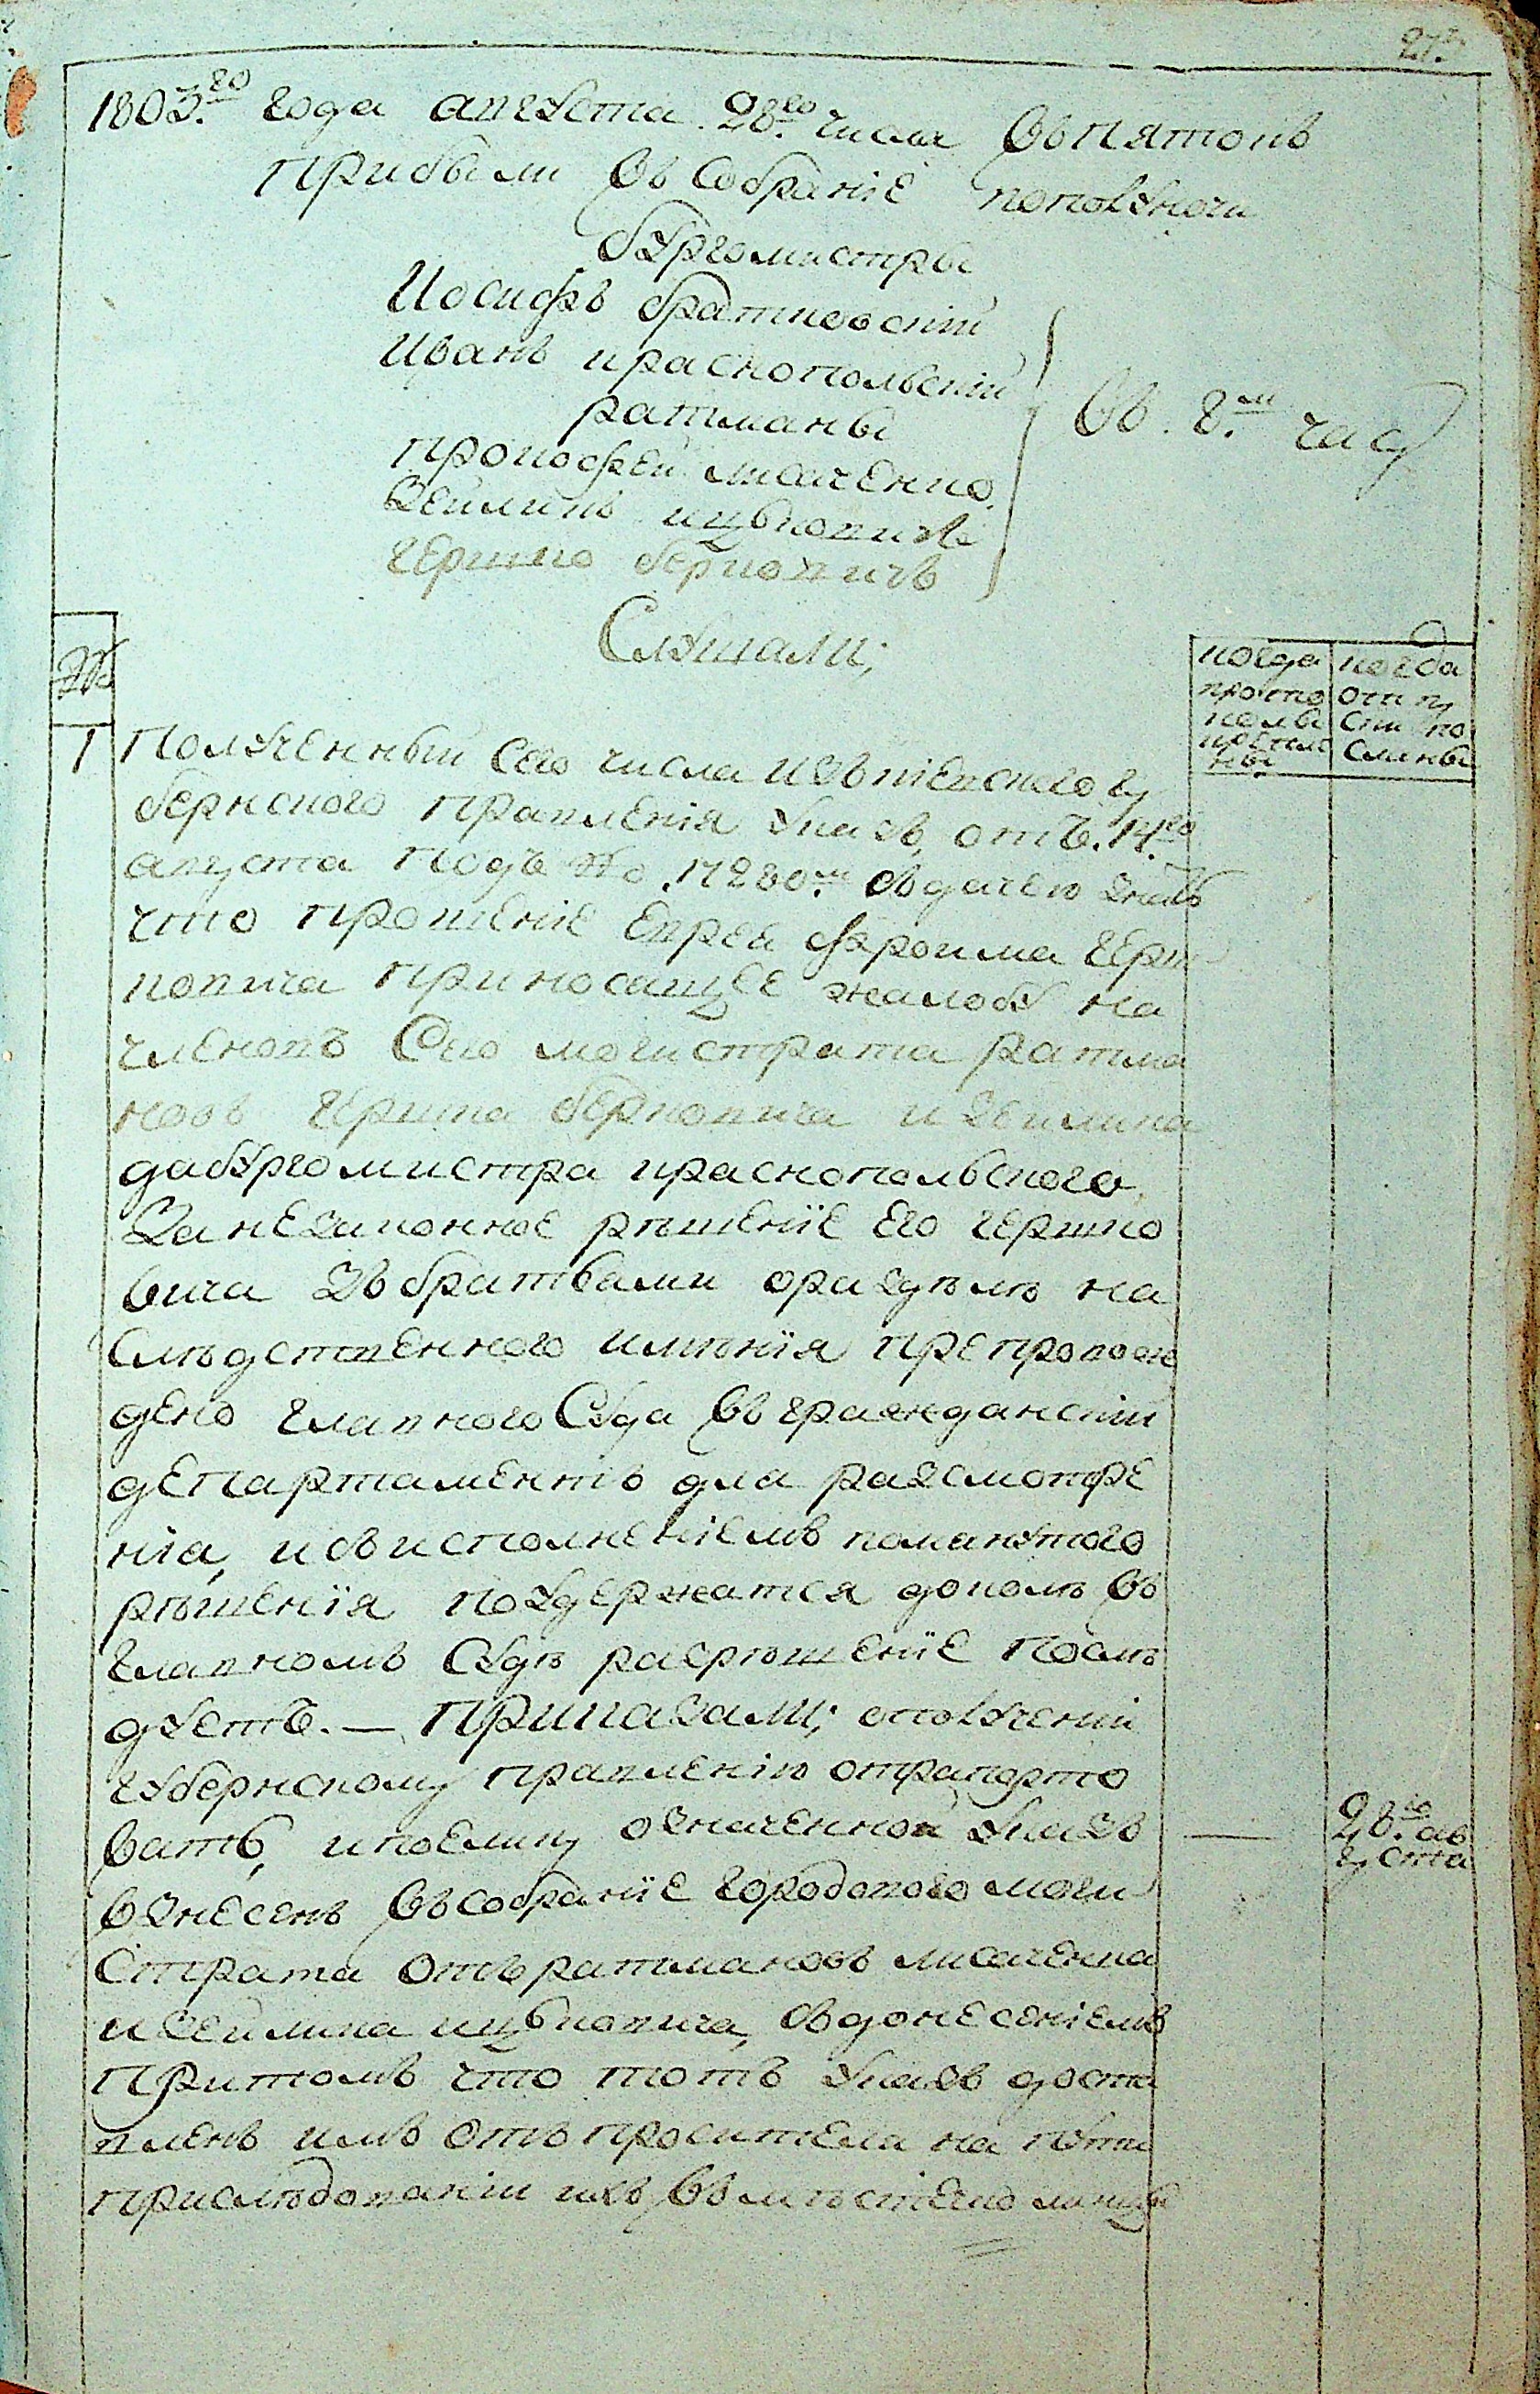 27.
1803.го года августа. 28.го числа въ пятокъ
прибыли въ собраніе пополуночи
бургомистры
Иосифъ братковскій
Иванъ краснопольскій
ратманы
прокофей лисаченко
Зеиликъ ицьковичъ
гершко берковичъ
въ. 8.м часу
Слушали;
№
когда прото колы
когда отпу сти по сланы
1 Полученный сего числа изъ кіевского гу
бернского правленія указъ, отъ. 14.го
августа подъ №о. 17280.м здачею знать
что прошеніе еврея фроима герш
ковича приносящее жалобу на
членовъ сего магистрата ратма
новъ гершка берковича и зеилика
да бургомистра краснопольского
за незаконное рѣшеніе его гершко
вича зъ братьями о раздѣлѣ на
слѣдственного имѣнія препровож
дено главного суда въ гражданскій
департаментъ для разсмотре
нія, и съ исполненіемъ помянутого
рѣшенія поудержатся доколѣ въ
главномъ судѣ разрѣшеніе послѣ
дуетъ. — Приказали; ополученіи
губернскому правленію отрапорто
вать, и поелику означенной указъ
внесенъ въ собраніе городового маги
страта отъ ратмановъ лисаченка
и зеилика ицьковича, зъ донесеніемъ
притомъ что тотъ указъ доста
вленъ имъ отъ просителя на пути
при слѣдованіи ихъ въ мѣстечко
28.го ав густа